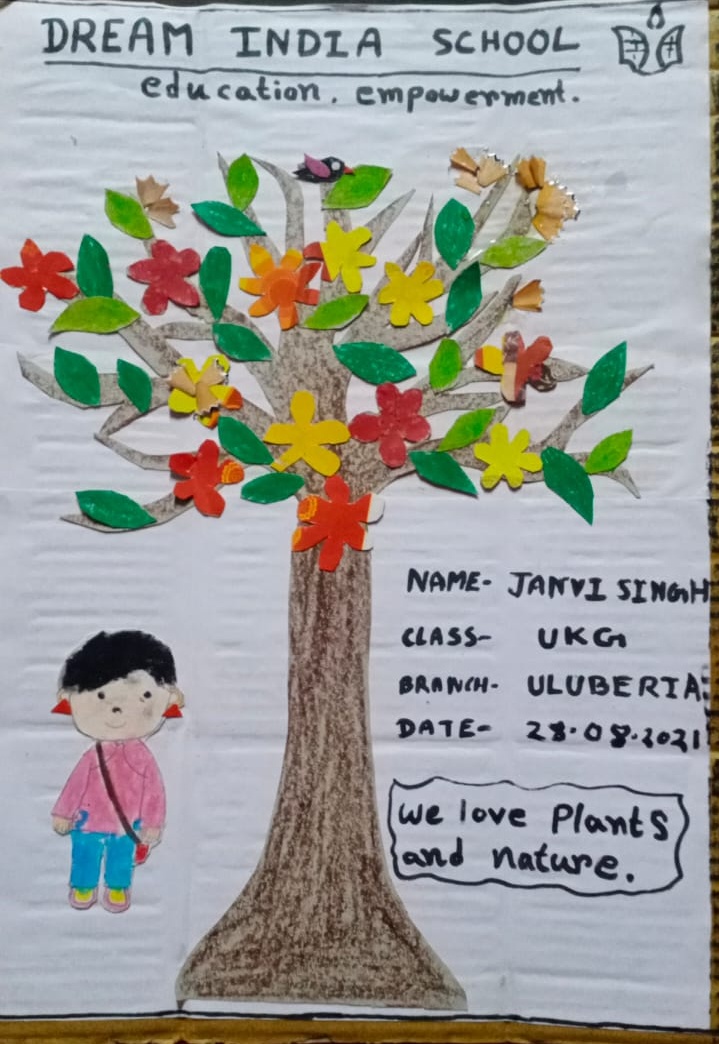 DREAM INDIA SCHOOL
education. empowerment.
NAME- JANVI SINGH
CLASS- UKG
BRANCH- ULUBERIA
DATE- 28.08.2021
We love Plants
and nature.